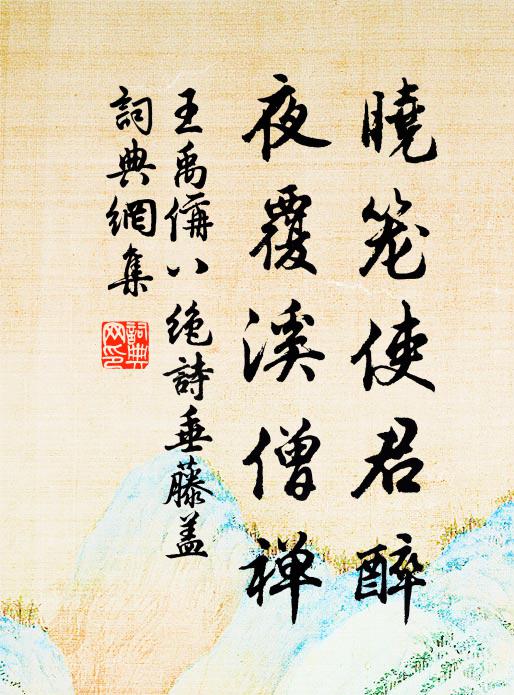 曉笼使君醉
夜覆溪僧禅
王禹偁八绝詩垂藤盖
詞典網集
詞典
网印